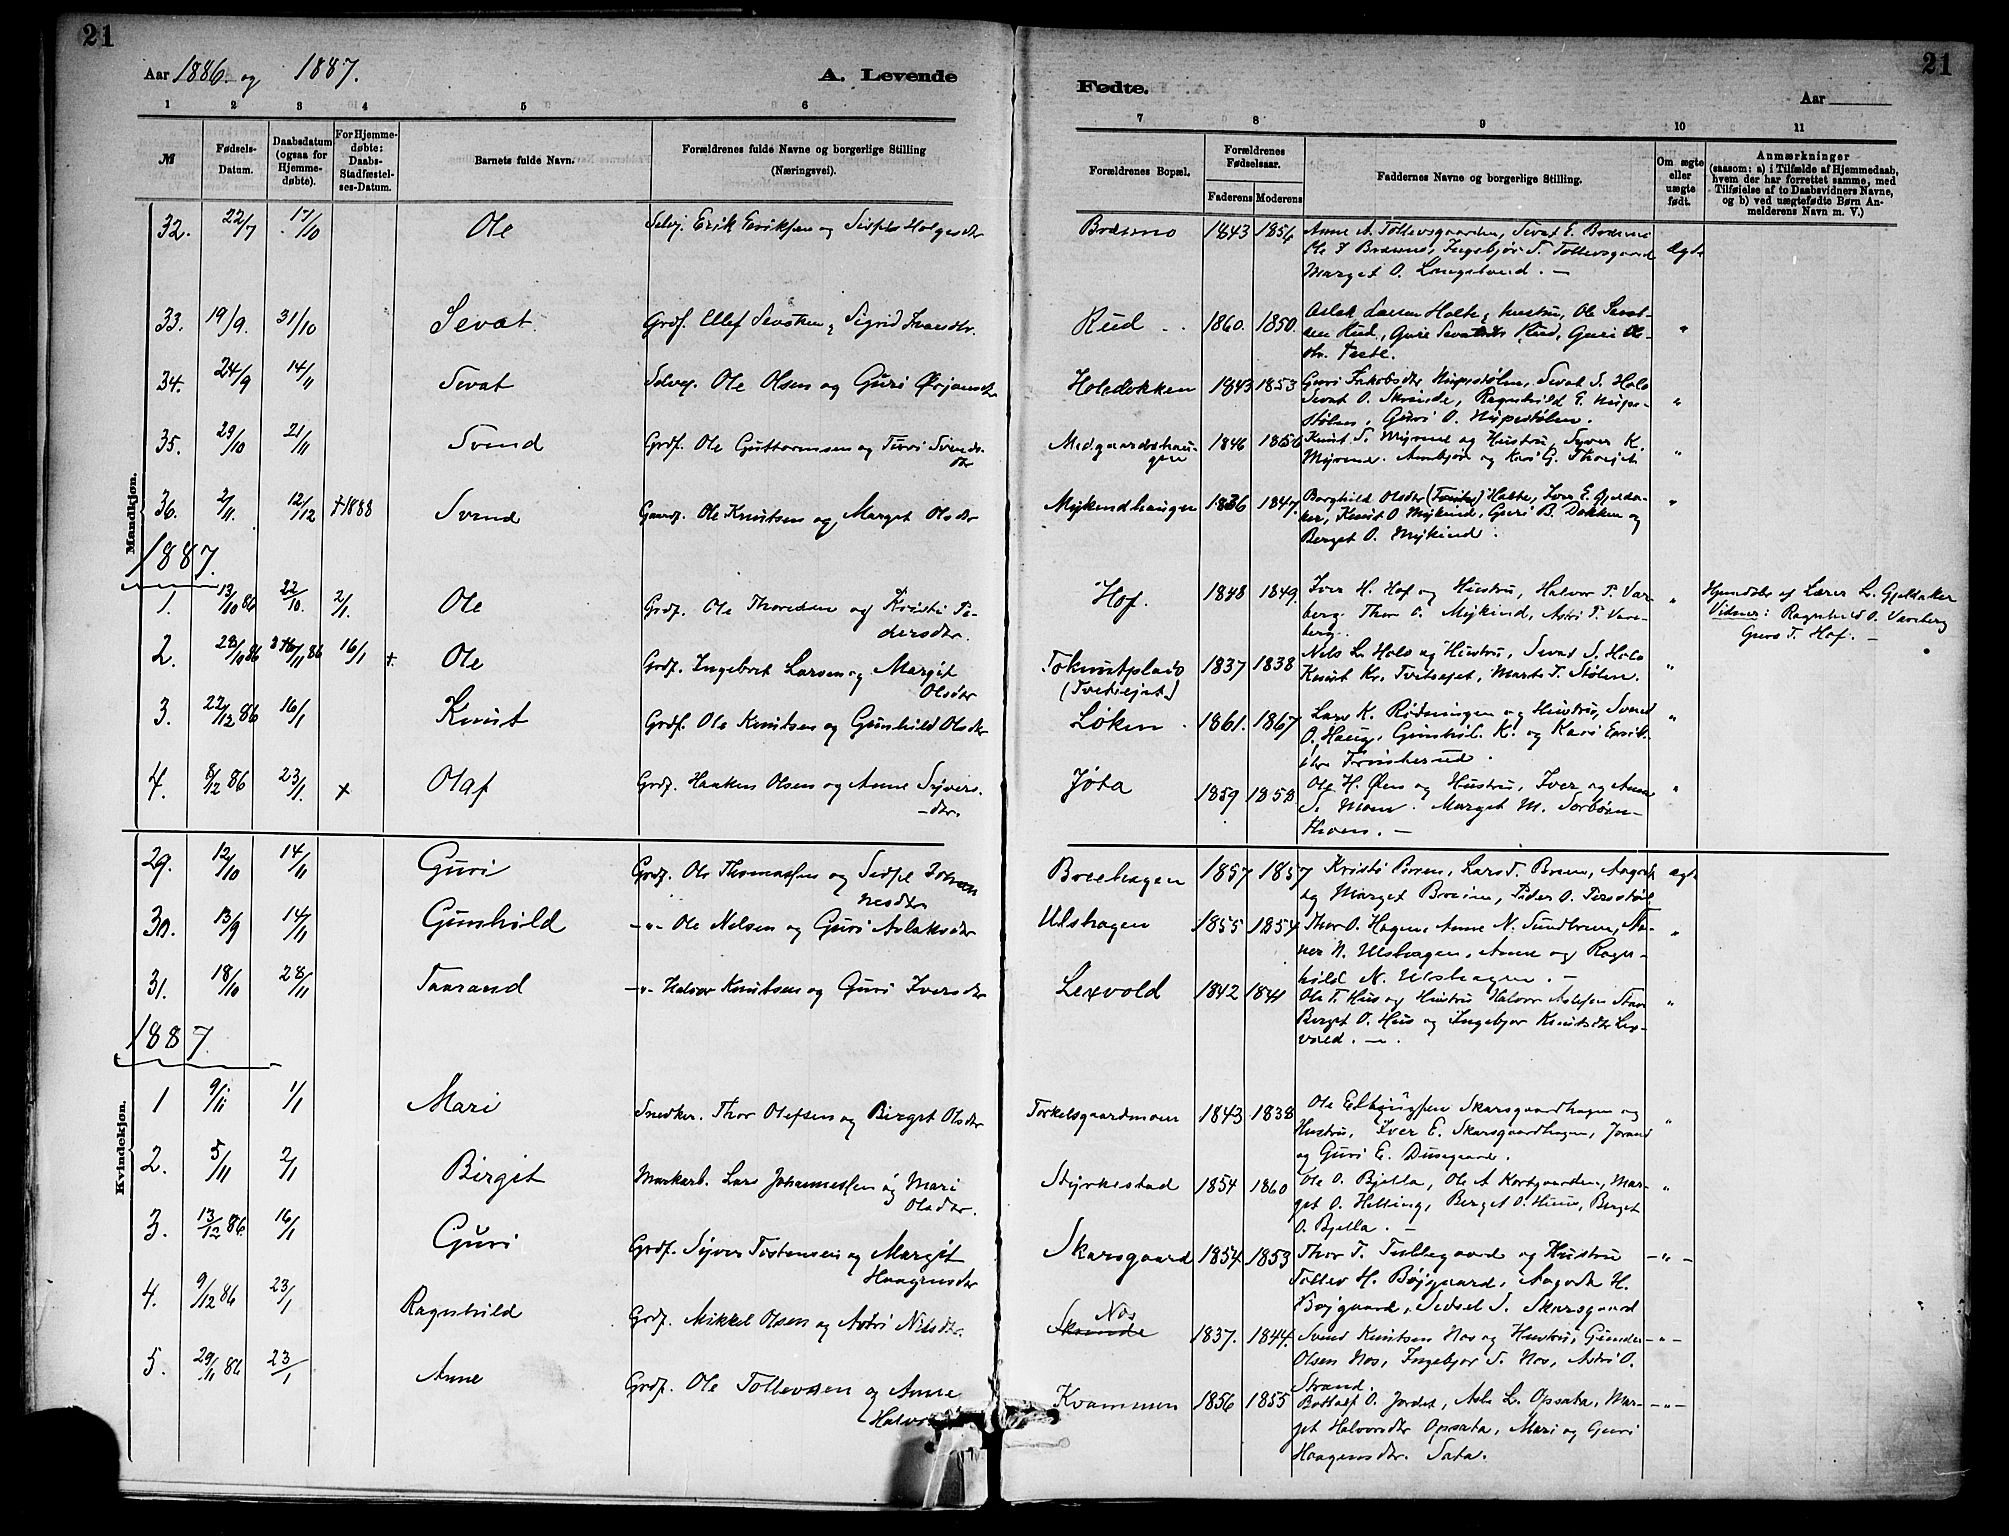 21
21
Aar 1886 og 1887.
A. Levende
Fødte.
Aar
1 2 3 4 5 6
7 8 9 10 11
№
Fødsels-Datum.
Daabsdatum (ogsaa for Hjemme-døbte).
For Hjemme-døbte: Daabs-Stadfæstel-ses-Datum.
Barnets fulde Navn.
Forældrenes fulde Navne og borgerlige Stilling (Næringsvei).
Forældrenes Bopæl.
Forældrenes Fødselsaar.
Faderens Moderens
Faddernes Navne og borgerlige Stilling.
Om ægte eller uægte født.
Anmærkninger
(saasom: a) i Tilfælde af Hjemmedaab,
hvem der har forrettet samme, med
Tilføielse af to Daabsvidners Navne,
og b) ved uægtefødte Børn An-
melderens Navn m. V.)
Mandkjøn.
32. 22/7 17/10 Ole Selvj. Erik Eriksen og Holgesdtr 1843 1856 Anne A. Tollevsgaarden, Sevat E.
Ingebjør T. Tollevsgaard Ægte
Marget O.
33. 19/9. 31/10 Sevat. Grdf. Ellef og Sigrid Rud 1860. 1850. Aslak Larsen Holte og Hustru, Ole Sevat-
sen Rud, Guri Rud, Guri Ol- "
34. 24/9 14/11 Sevat Selvej. Ole Olsen og Guri Ørjansdtr Holedokken 1843 1853 Guri Jakobsdtr Nupestølen, Sevat S. Holo
Sevat O. Skrinde, Ragnhild E. Nupe- "
stølen, Guri O. Nupestølen.
35. 29/10 21/11 Svend Grdf. Ole Guttormsen og Svends-
dtr Medgaardshau-
gen 1846 1850 Knut S. Myrene og Hustru, Syver K.
Myrene. Annbjør og Kari G. "
36. 2/11. 12/12 +1888 Svend Gaardf. Ole Knutsen og Marget Olsdtr Mykindhaugen 1836 1847. Borghild Olsdtr Holte, Iver E. Gjelda-
ker, Knut O Mykind, Guri B. Dokken og "
Berget O. Mykind.
1887.
1. 13/10 86 22/10. 2/1. Ole Grdf. Ole Thoresen og Kristi Pe-
dersdtr. Hof. 1848 1849. Iver H. Hof og Hustru, Halvor P. Var-
berg. Thor O. Mykind, Astri P. Vare-
berg. " Hjemdøbt af Lærer L. Gjeldaker
Vidner: Ragnhild O. Vareberg
Guro T. Hof. —
2. 28/10 86 /11 86 16/1 +. Ole Grdf. Ingebret Larsen og Margit
Olsdtr Toknutplads
(Tveitejet) 1837 1838 Nils L. Holo og Hustru, Sevad S. Holo
Knut Kr. Tveitejet, Marte T. Stølen. "
3. 22/12 86 16/1 Knut Grdf. Ole Knutsen og Gunhild Olsdtr Løken. 1861. 1867 Lars K. Rødningen og Hustru, Svend
O. Haug, Gunhild K. og Kari "
4. 8/12 86 23/1. + Olaf Grdf. Haaken Olsen og Anne Syvers-
dtr. Jøta 1859 1858 Ole H. Øen og Hustru, Iver og Anne
S. Moen. Marget M. "
29. 12/10 14/11 Guri Grdf. Ole Thomassen og Johan
nesdtr Breihagen 1857 1857 Kristi Breien, Lars T. Breien, Aagodt
og Marget Breien, Peder O. ægte
30. 13/9 14/11 Gunhild —"— Ole Nilsen og Guri Aslaksdtr Ulshagen 1855 1854 Thor O. Hagen, Anne N. Sundbrein,
N. Ulshagen, Anne og Ragn- "
hild N. Ulshagen. —
31. 18/10 28/11 Taarand —"— Halvor Knutsen og Guri Iversdtr Lexvold 1842 1841 Ole T. Hus og Hustru Halvor Aslesen
Berget O. Hus og Ingebjør Knutsdtr Lex- "
vold. —
Kvindekjøn.
1887.
1 9/11 1/1 Mari Snedker. Thor Olefsen og Birget Olsdtr Torkelsgaardmoen 1843 1838 Ole Skarsgaardhagen og
Hustru, Iver E. Skarsgaardhagen, Jorand "
og Guri E.
2. 5/11 2/1 Birgit Markarb. Lars Johannessen og Mari
Olsdtr. Styrkestad 1854 1860 Ole O. Bjella, Ole A Kortgaarden, Mar-
get O. Helling, Berget O. Huus, Berget "
O. Bjella. —
3. 13/12 86. 16/1 Guri Grdf. Syver Tostensen og Margit
Haagensdtr Skarsgaard 1854. 1853 Thor T. Tullegaard og Hustru —"—
Tollev H. Bøjgaard, Aagodt H.
Bøjgaard, Sidsel S. Skarsgaard
4. 9/12 86 23/1 Ragnhild Grdf. Mikkel Olsen og Astri Nilsdtr. Nos
Skrinde 1837. 1844. Svend Knutsen Nos og Hustru, Gunder —"—
Olsen Nos, Ingebjør S. Nos, Astri O.
Strand.
5. 29/11 86 23/1 Anne Grdf. Ole Tollevsen og Anne
Kvammen 1856 1855 Bottolf O. Jordet, Asle L. Opsata, Mar- —"—
get Halvorsdtr Opsata, Mari og Guri
Haagensdtr. Sata.